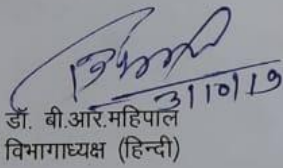 3/10/19
डॉ. बी.आर.महिपाल
विभागाध्यक्ष (हिन्दी)